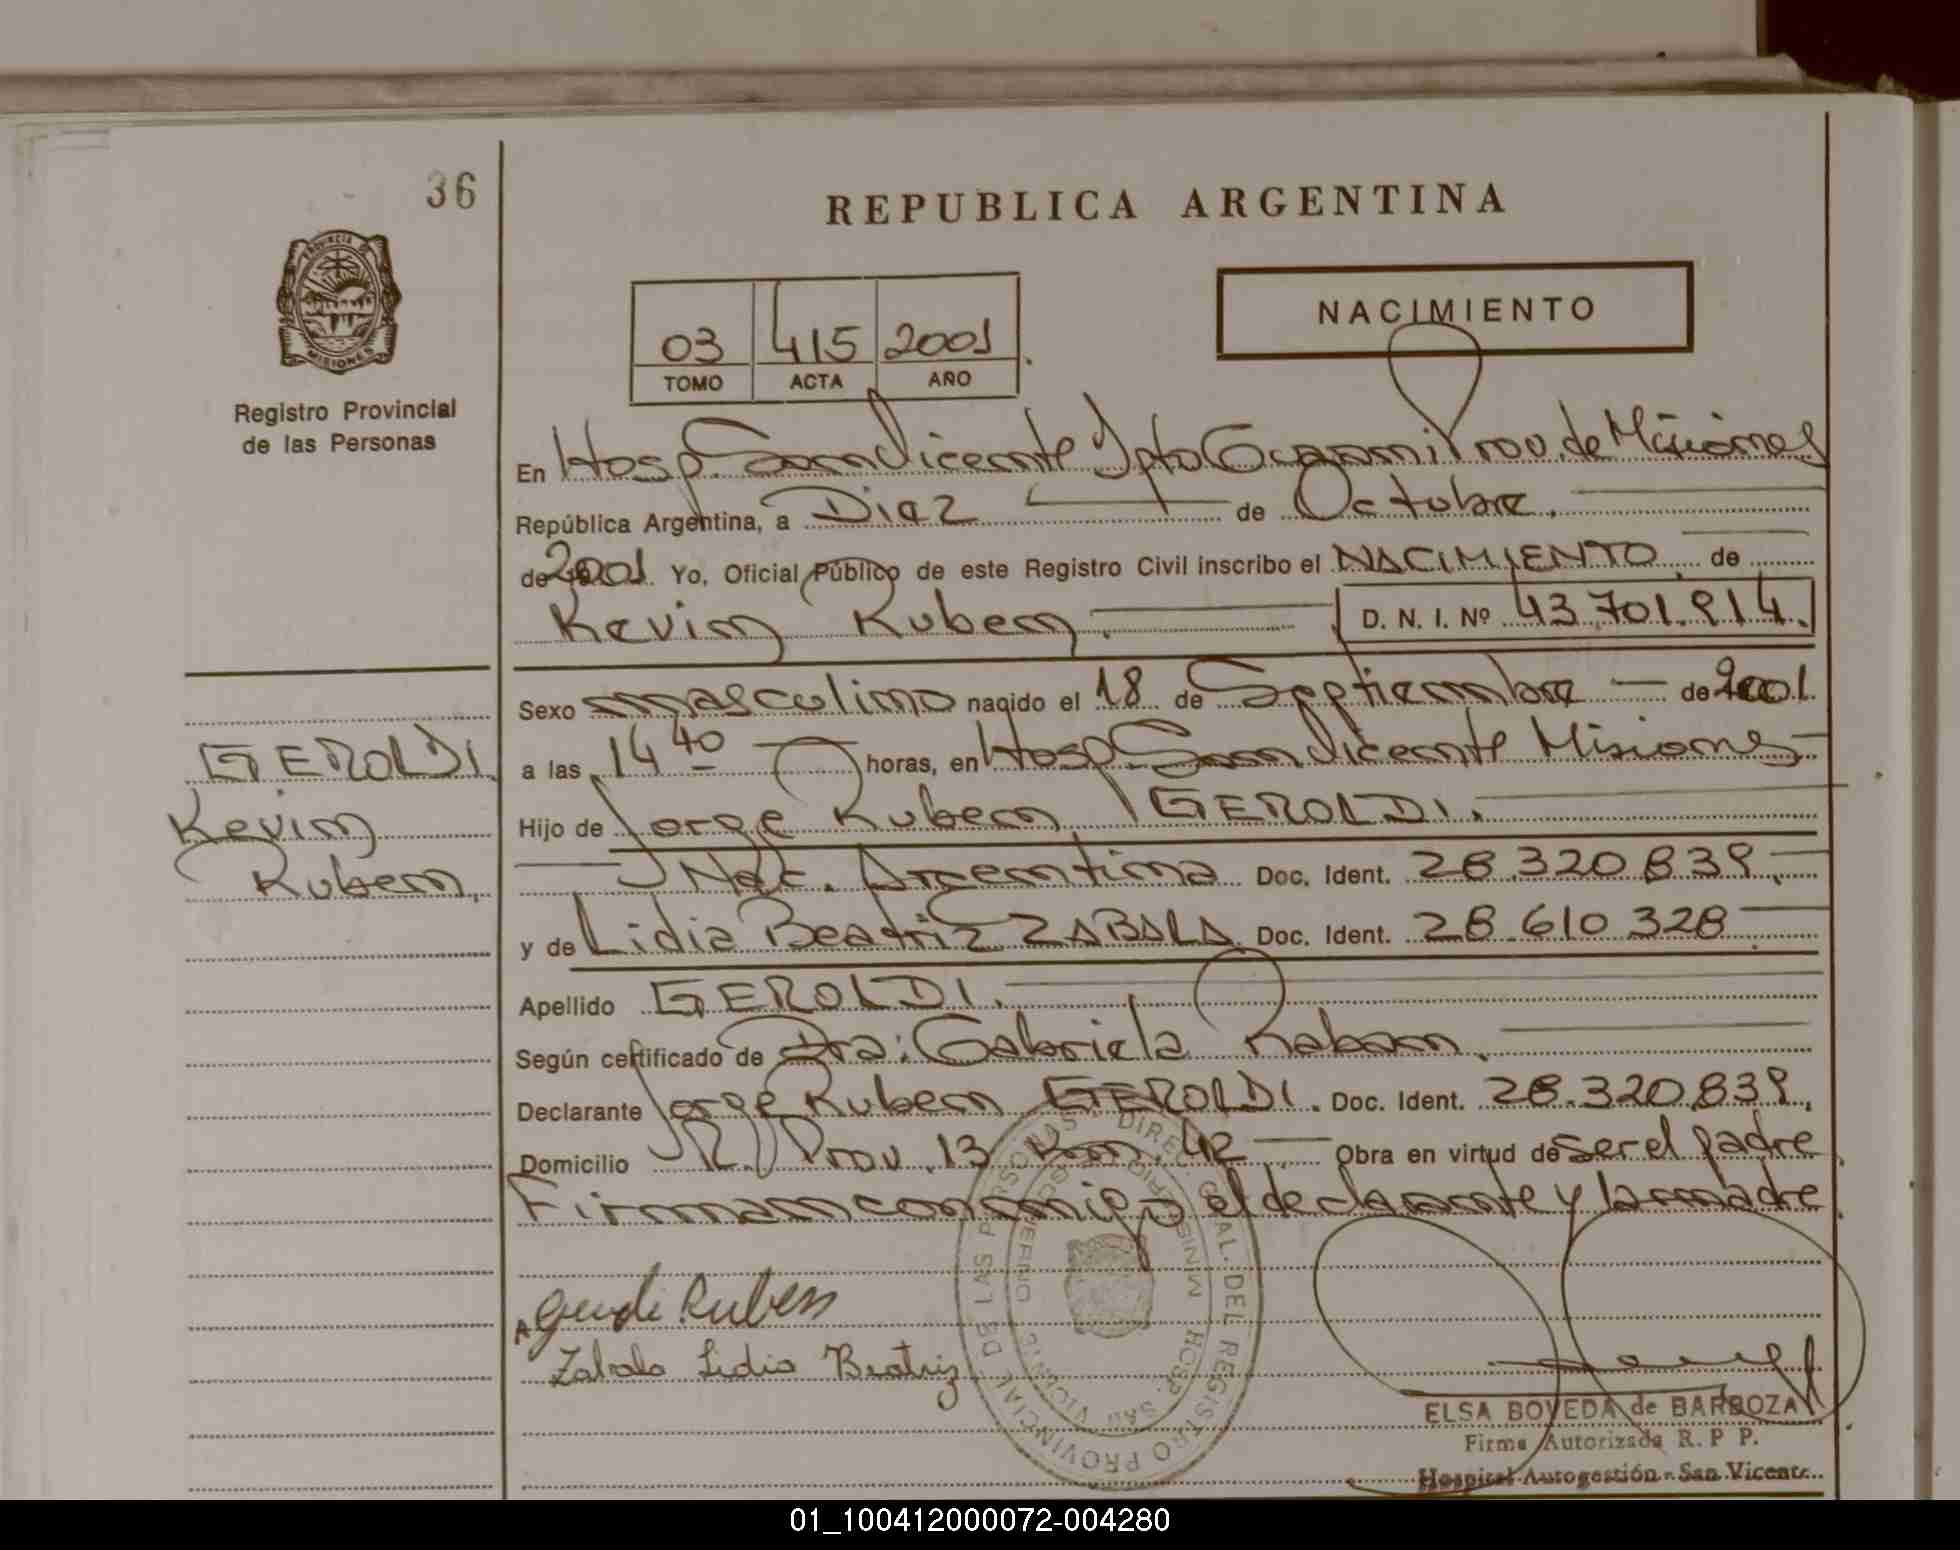 36
REPUBLICA ARGENTINA
PROVINCIA DE
MISIONES
Registro Provincial
de las Personas
NACIMIENTO
03 415 2001
TOMO ACTA AÑO
En Hosp. San Vicente Dpto Guaraní Prov. de Misiones
República Argentina, a Diez de Octubre.
de 2001 Yo, Oficial Público de este Registro Civil inscribo el NACIMIENTO de
Kevin Ruben. D. N. I. Nº 43.701.914.
Sexo masculino nacido el 18 de Septiembre de 2001.
a las 14 40 horas, en Hosp. San Vicente Misiones
Hijo de Jorge Ruben GEROLDI.
Nac. Argentina Doc. Ident. 28.320.839.
y de Lidia Beatriz ZABALA Doc. Ident. 28.610.328
Apellido GEROLDI.
Según certificado de Dra: Gabriela Raban.
Declarante Jorge Ruben GEROLDI. Doc. Ident. 28.320.839.
Domicilio R. Prov. 13 Km. 42 Obra en virtud de ser el padre
Firman conmigo el declarante y la madre
GEROLDI
Kevin
Ruben.
Ruben
Zabala Lidia Beatriz
DIREC. GRAL. DEL REGISTRO PROVINCIAL DE LAS PERSONAS
MINISTERIO DE GOBIERNO
HOSP. SAN VICENTE
ELSA BOVEDA de BARBOZA
Firma Autorizada R. P P.
Hospital Autogestión - San Vicente
01_100412000072-004280